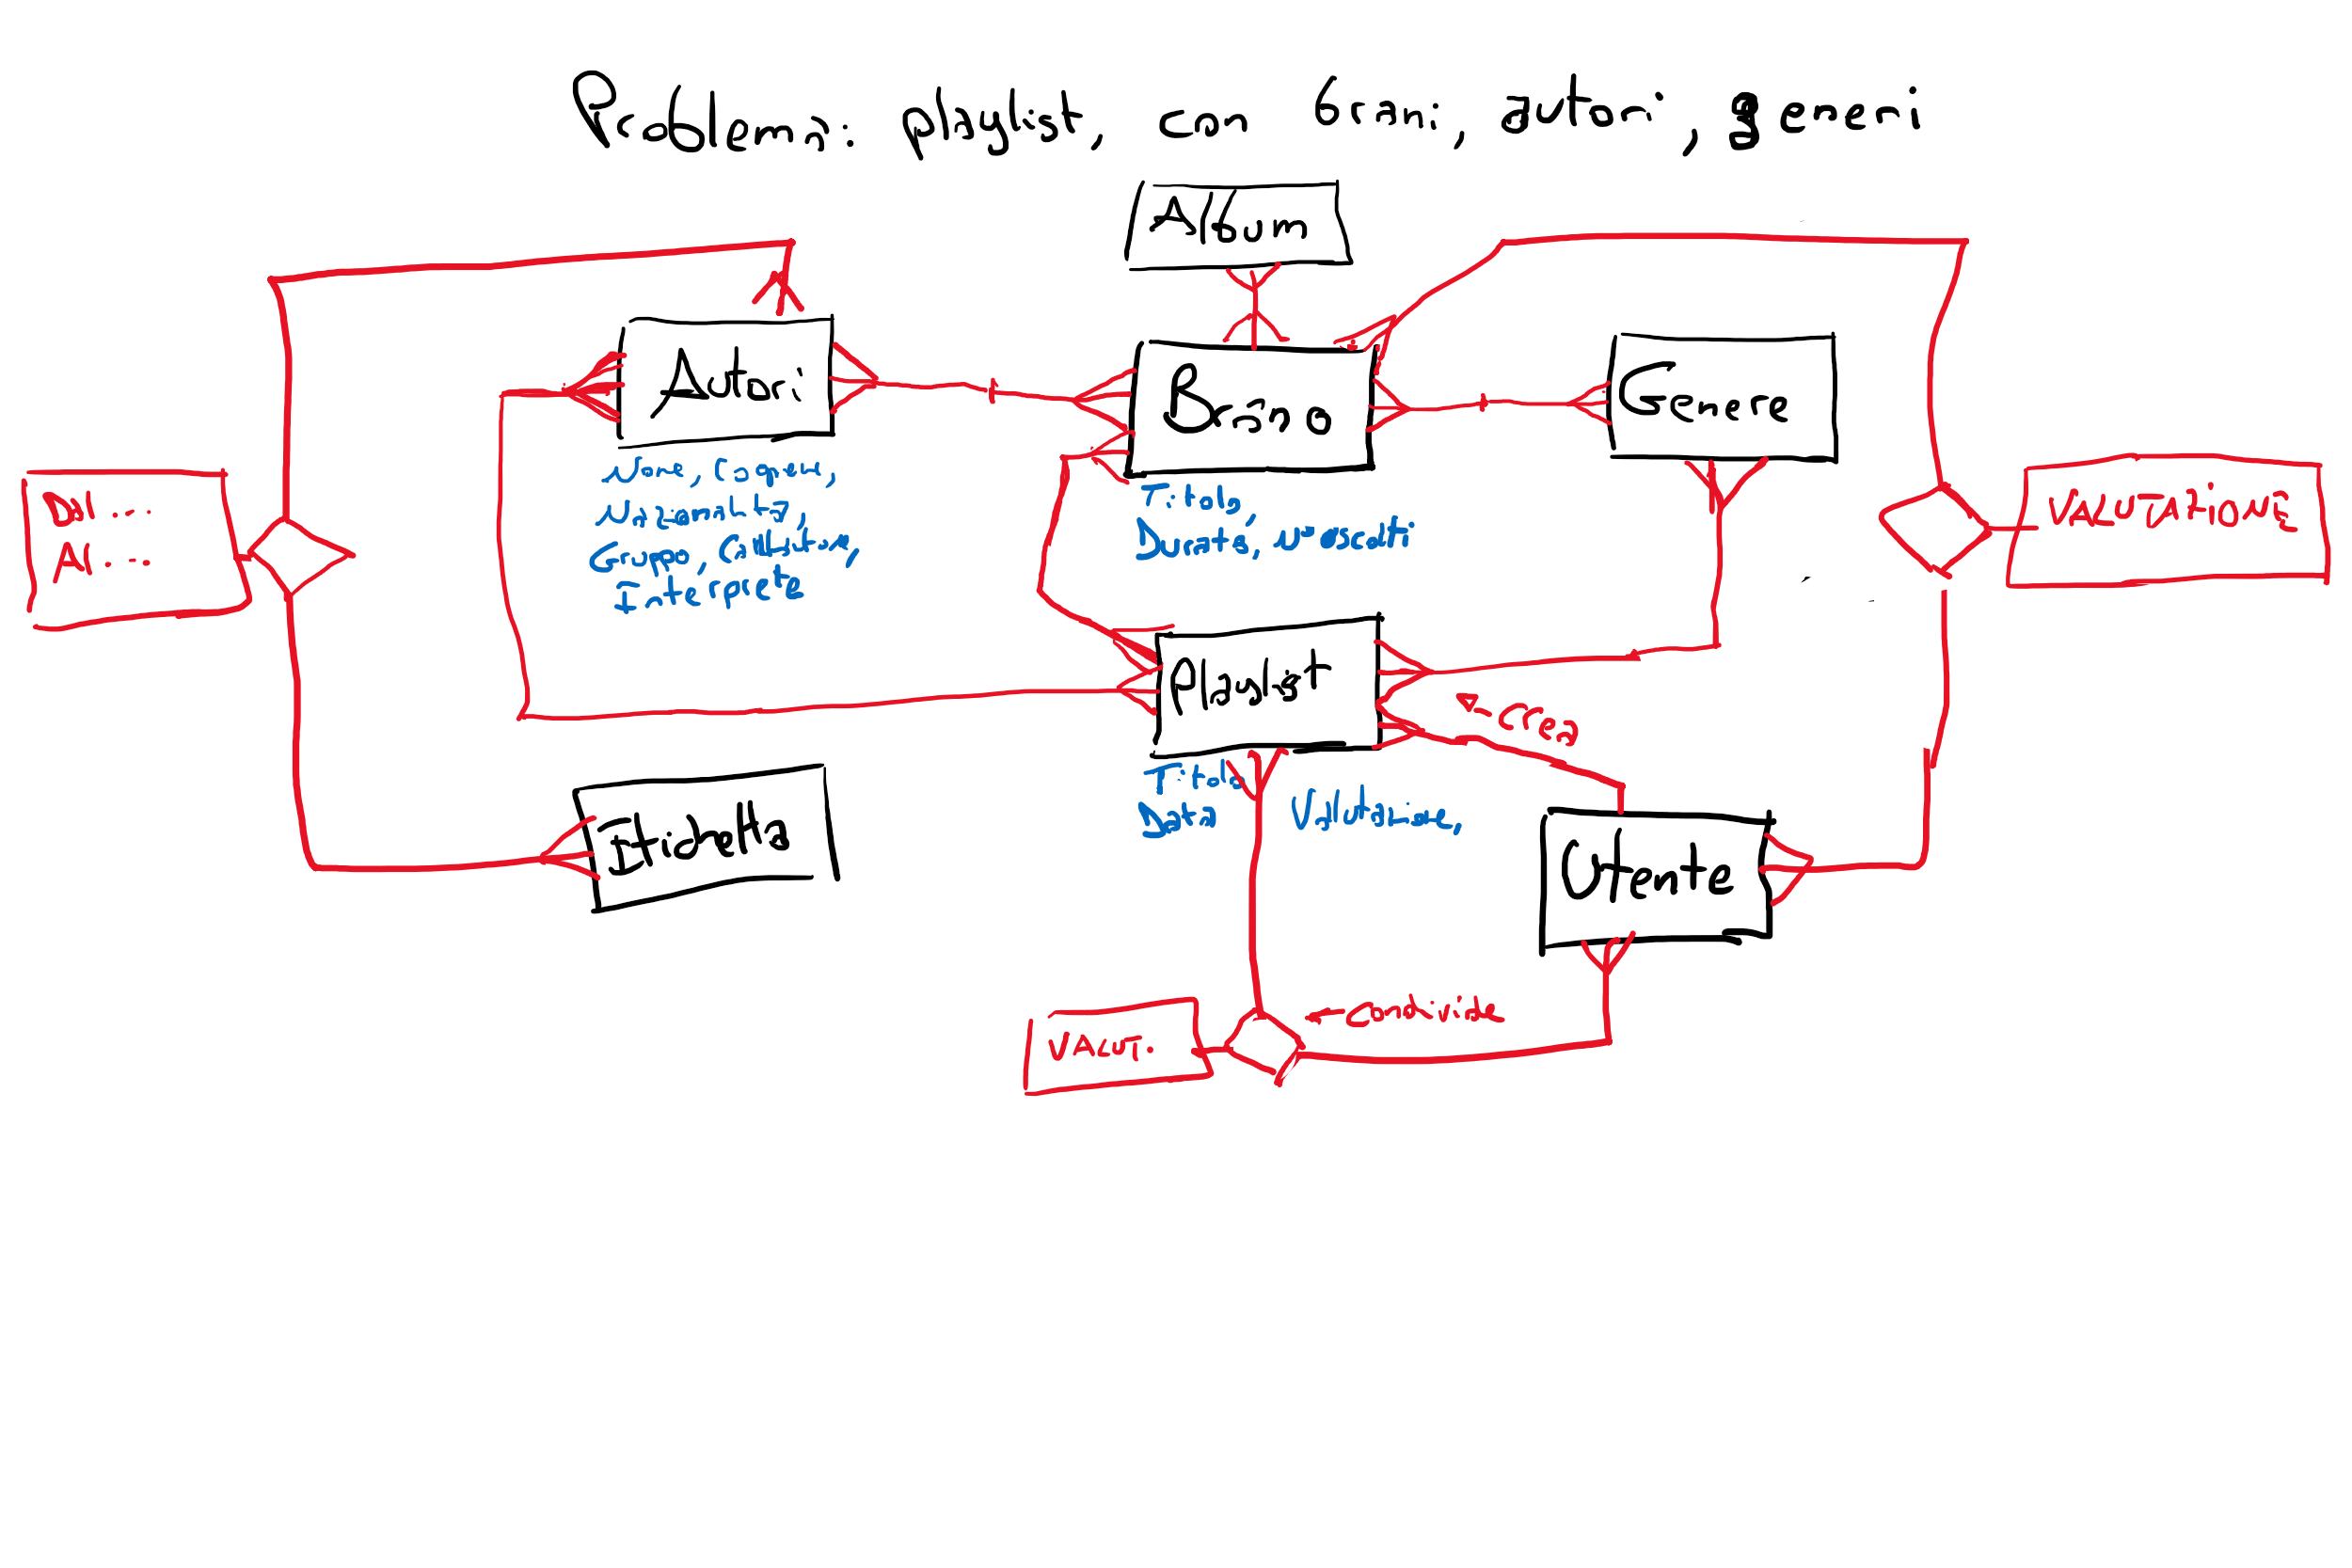 Problema: playlist, con brani, autori, generi
Album
Autori
Brano
Genere
Nome, Cognome,
Nazionalità,
Gruppo, Cantautore,
Interprete
Titolo,
Durata, N° ascolti
Dal ...
Al ...
VALUTAZIONE
Playlist
Crea
Titolo
Data
Valutazione,
Etichetta
Utente
Condivide
VALUT.